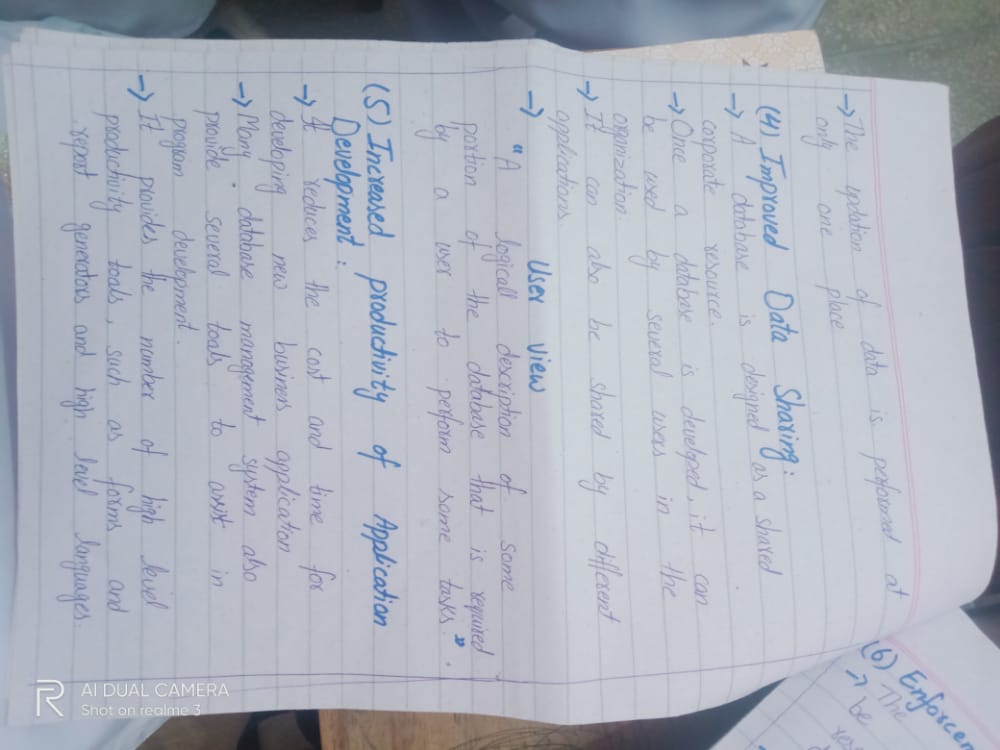 → The updation of data is performed at
only one place
(4) Improved Data Sharing:
→ A database is designed as a shared
corporate resource.
→ One a database is developed, it can
be used by several users in the
organization.
→ It can also be shared by different
applications.
User view
→ "A logicall description of some
portion of the database that is required
by a user to perform some tasks.".
(5) Increased productivity of Application
Development:
→ It reduces the cost and time for
developing new business application
→ Many database management system also
provide several tools to assist in
program development.
→ It provides the number of high level
productivity tools, such as forms and
report generators and high level languages.
(6) Enforcem
→ The
be
R AI DUAL CAMERA
Shot on realme 3